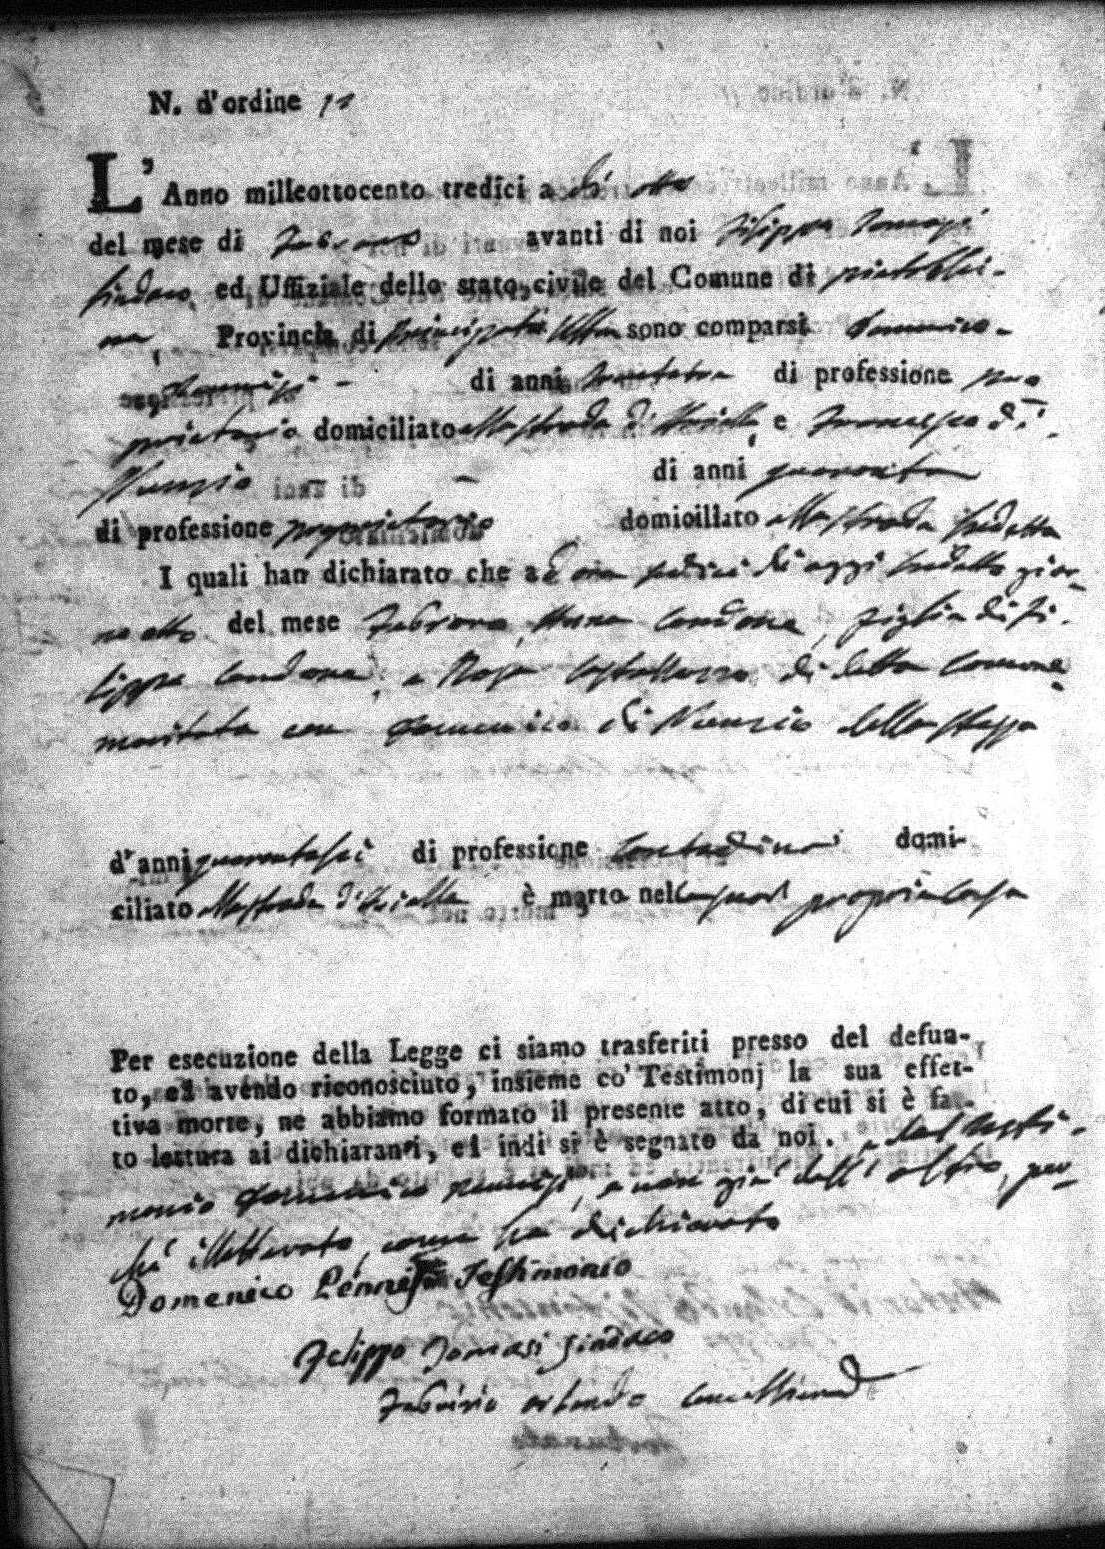 N. d'ordine
L'Anno milleottocento tredici a dì otto
del mese di Febraro avanti di noi Filippo Tomasi
Sindaco ed Uffiziale dello stato civile del Comune di
Provincia di Principato Ultra sono comparsi Domenico
di anni di professione pro
prietario domiciliato alla strada e Francesco di
Nunzio di anni quaranta
di professione proprietario domicillato alla strada sudetta
I quali han dichiarato che ad ore sedici di oggi sudetto gior-
no otto del mese Febraro, Anna Cardone, figlia di Fi-
lippo Cardone, e Rosa di detta Comune
maritata con Domenico di Nunzio della stessa
d'anni quarantasei di professione contadina domi-
ciliato alla strada è morto nel propria casa
Per esecuzione della Legge ci siamo trasferiti presso del defun-
to, ed avendo riconosciuto, insieme co' Testimonj la sua effet-
tiva morte, ne abbiamo formato il presente atto, di cui si è fat-
to lettura ai dichiaranti, ed indi si è segnato da noi. e dal testi-
monio Domenico Pennisi, e non già dall'altro, per-
ché illetterato, come ha dichiarato
Domenico Testimonio
Filippo Tomasi Sindaco
Fabrizio Orlando